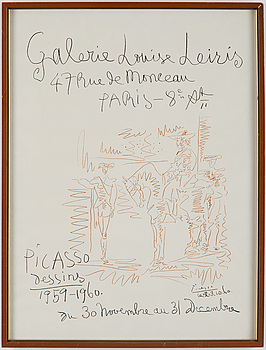 Galerie Louise Leiris
47 Rue de Monceau
PARIS - 8e
PICASSO
dessins
1959-1960.
Du 30 Novembre au 31 Decembre